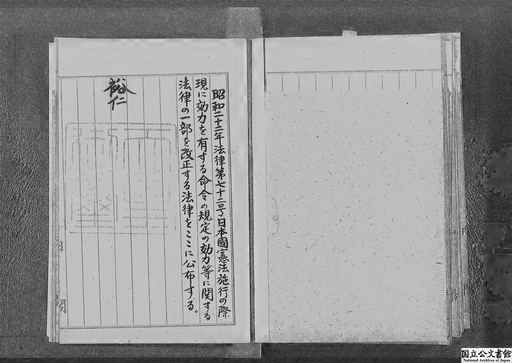 昭和二十二年法律第七十二号日本國憲法施行の際
現に効力を有する命令の規定の効力等に関する
法律の一部を改正する法律をここに公布する。
裕仁
国立公文書館
National Archives of Japan